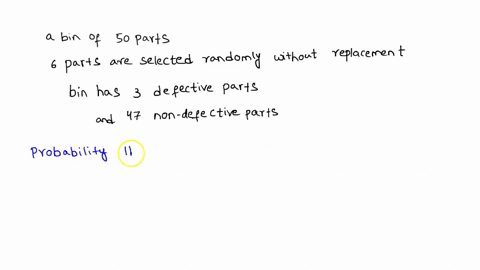 a bin of 50 parts
6 parts are selected randomly without replacement
bin has 3 defective parts
and 47 non-defective parts
Probability